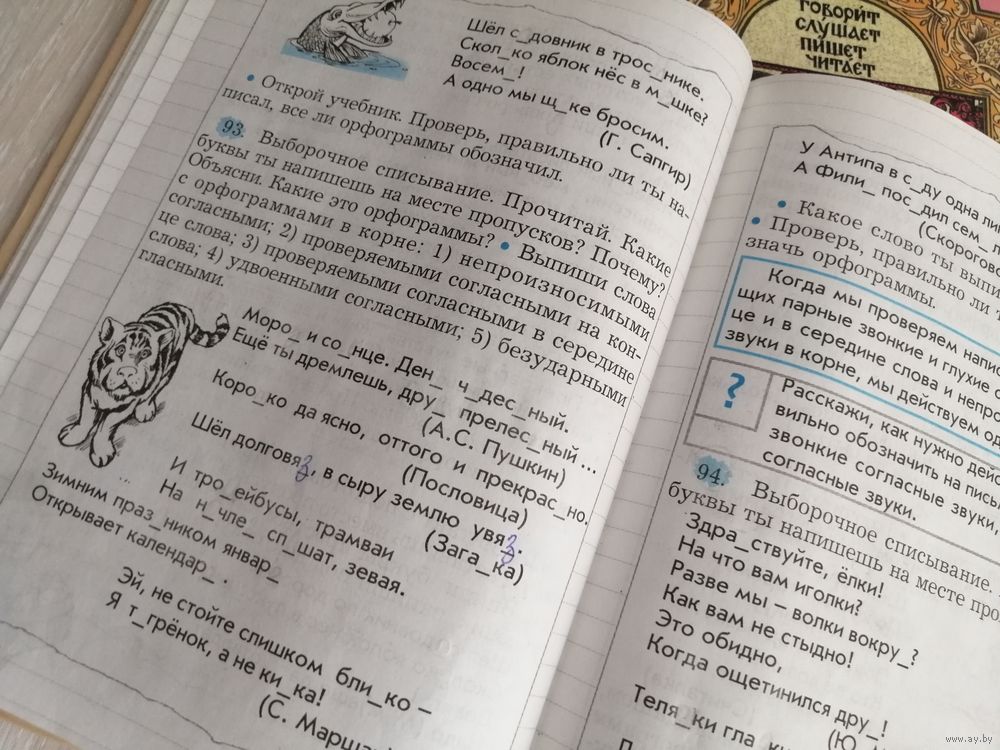 ГОВОРИ́Т
СЛУ́ШАЕТ
ПИ́ШЕТ
ЧИТА́ЕТ
Шёл с_довник в трос_нике.
Скол_ко яблок нёс в м_шке?
Восем_!
А одно мы щ_ке бросим.
(Г. Сапгир)
• Открой учебник. Проверь, правильно ли ты на-
писал, все ли орфограммы обозначил.
93 Выборочное списывание. Прочитай. Какие
буквы ты напишешь на месте пропусков? Почему?
Объясни. Какие это орфограммы? • Выпиши слова
с орфограммами в корне: 1) непроизносимыми
согласными; 2) проверяемыми согласными на кон-
це слова; 3) проверяемыми согласными в середине
слова; 4) удвоенными согласными; 5) безударными
гласными.
Моро_ и со_нце. Ден_ ч_дес_ный.
Ещё ты дремлешь, дру_ прелес_ный ...
(А.С. Пушкин)
Коро_ко да ясно, оттого и прекрас_но.
(Пословица)
Шёл долговяз, в сыру землю увяз.
(Зага_ка)
И тро_ейбусы, трамваи
На н_чле_ сп_шат, зевая.
...
Зимним праз_ником январ_
Открывает календар_.
Эй, не стойте слишком бли_ко –
Я т_грёнок, а не ки_ка!
(С. Марша
У Антипа в с_ду одна ли
А Фили_ пос_дил сем_
(Скорогово
• Какое слово ты выпи
• Проверь, правильно ли т
значь орфограммы.
Когда мы проверяем напис
щих парные звонкие и глухие с
це и в середине слова и непро
звуки в корне, мы действуем од
?
Расскажи, как нужно дейс
вильно обозначить на пись
звонкие согласные звуки,
согласные звуки.
94. Выборочное списывание.
буквы ты напишешь на месте про
Здра_ствуйте, ёлки!
На что вам иголки?
Разве мы – волки вокру_?
Как вам не стыдно!
Это обидно,
Когда ощетинился дру_!
(Ю
Теля_ки гла
www.ay.by